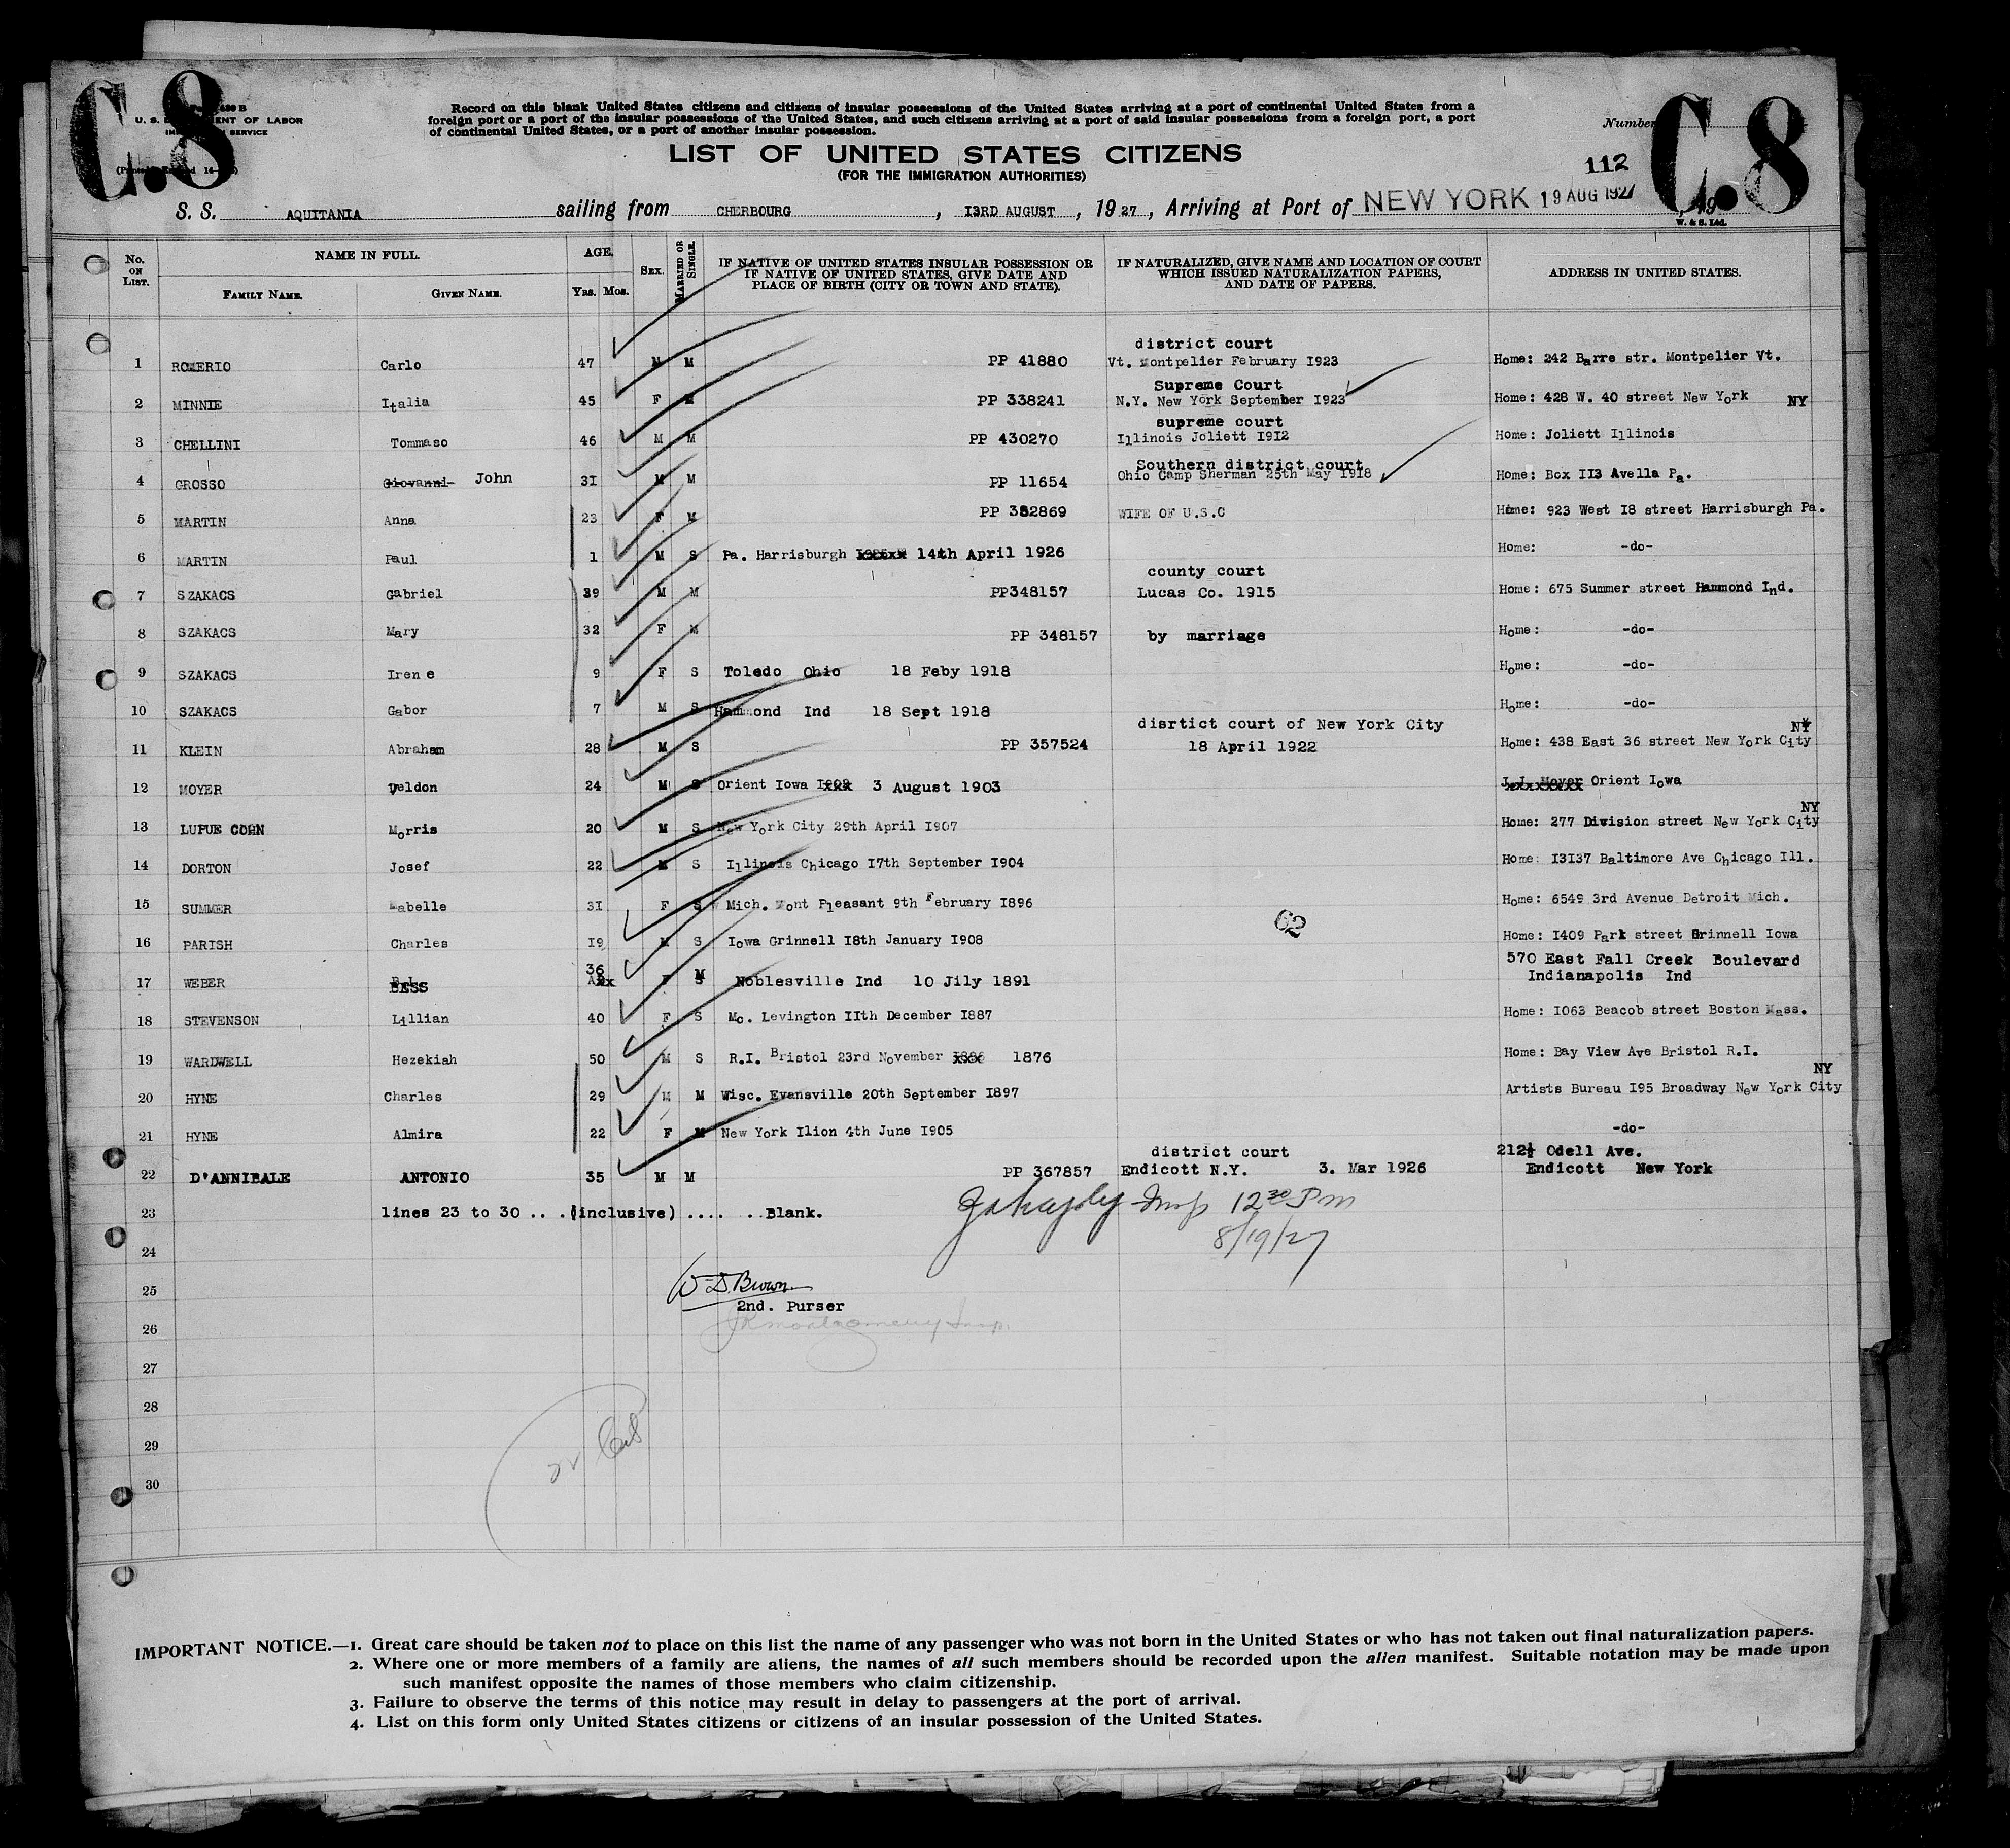 C.8
U. S. DEPARTMENT OF LABOR
IMMIGRATION SERVICE
Record on this blank United States citizens and citizens of insular possessions of the United States arriving at a port of continental United States from a
foreign port or a port of the insular possessions of the United States, and such citizens arriving at a port of said insular possessions from a foreign port, a port
of continental United States, or a port of another insular possession.
Number
C.8
LIST OF UNITED STATES CITIZENS
(FOR THE IMMIGRATION AUTHORITIES)
112
S. S. AQUITANIA sailing from CHERBOURG , I3RD AUGUST , 1927 , Arriving at Port of NEW YORK 19 AUG 1927 , 19
W. & S. Ltd.
No. ON LIST. NAME IN FULL. AGE. SEX. MARRIED OR SINGLE. IF NATIVE OF UNITED STATES INSULAR POSSESSION OR IF NATIVE OF UNITED STATES, GIVE DATE AND PLACE OF BIRTH (CITY OR TOWN AND STATE). IF NATURALIZED, GIVE NAME AND LOCATION OF COURT WHICH ISSUED NATURALIZATION PAPERS, AND DATE OF PAPERS. ADDRESS IN UNITED STATES.
FAMILY NAME. GIVEN NAME. YRS. MOS.
district court
1 ROMERIO Carlo 47 M M PP 41880 Vt. Montpelier February I923 Home: 242 Barre str. Montpelier Vt.
Supreme Court
2 MINNIE Italia 45 F M PP 338241 N.Y. New York September I923 Home: 428 W. 40 street New York NY
supreme court
3 CHELLINI Tommaso 46 M M PP 430270 Illinois Joliett I9I2 Home: Joliett Illinois
Southern district court
4 GROSSO Giovanni John 3I M M PP 11654 Ohio Camp Sherman 25th May I9I8 Home: Box II3 Avella Pa.
5 MARTIN Anna 23 F M PP 382869 WIFE OF U.S.C Home: 923 West I8 street Harrisburgh Pa.
6 MARTIN Paul 1 M S Pa. Harrisburgh 14th April 1926 Home: -do-
county court
7 SZAKACS Gabriel 39 M M PP348157 Lucas Co. 1915 Home: 675 Summer street Hammond Ind.
8 SZAKACS Mary 32 F M PP 348157 by marriage Home: -do-
9 SZAKACS Irene 9 F S Toledo Ohio 18 Feby 1918 Home: -do-
10 SZAKACS Gabor 7 M S Hammond Ind 18 Sept 1918 Home: -do-
disrtict court of New York City NY
11 KLEIN Abraham 28 M S PP 357524 18 April 1922 Home: 438 East 36 street New York City
12 MOYER Veldon 24 M S Orient Iowa 3 August 1903 J.J. Moyer Orient Iowa
NY
13 LUFUE COHN Morris 20 M S New York City 29th April I907 Home: 277 Division street New York City
14 DORTON Josef 22 M S Illinois Chicago I7th September I904 Home: I3I37 Baltimore Ave Chicago Ill.
15 SUMMER Mabelle 3I F S Mich. Mont Pleasant 9th February I896 Home: 6549 3rd Avenue Detroit Mich.
62
16 PARISH Charles I9 M S Iowa Grinnell I8th January I908 Home: I409 Park street Grinnell Iowa
36 M 570 East Fall Creek Boulevard
17 WEBER BESS F S Noblesville Ind 10 Jily 1891 Indianapolis Ind
18 STEVENSON Lillian 40 F S Mo. Levington IIth December I887 Home: I063 Beacob street Boston Mass.
19 WARDWELL Hezekiah 50 M S R.I. Bristol 23rd November 1876 Home: Bay View Ave Bristol R.I.
NY
20 HYNE Charles 29 M M Wisc. Evansville 20th September I897 Artists Bureau I95 Broadway New York City
21 HYNE Almira 22 F M New York Ilion 4th June I905 -do-
district court 212½ Odell Ave.
22 D'ANNIBALE ANTONIO 35 M M PP 367857 Endicott N.Y. 3. Mar 1926 Endicott New York
23 lines 23 to 30 .. .(inclusive) .... ..Blank.
Insp 12 30 Pm
8/19/27
24
25 W. D. Brown
2nd. Purser
26 Montgomery Insp.
27
28
29
30
IMPORTANT NOTICE.—1. Great care should be taken not to place on this list the name of any passenger who was not born in the United States or who has not taken out final naturalization papers.
2. Where one or more members of a family are aliens, the names of all such members should be recorded upon the alien manifest. Suitable notation may be made upon
such manifest opposite the names of those members who claim citizenship.
3. Failure to observe the terms of this notice may result in delay to passengers at the port of arrival.
4. List on this form only United States citizens or citizens of an insular possession of the United States.